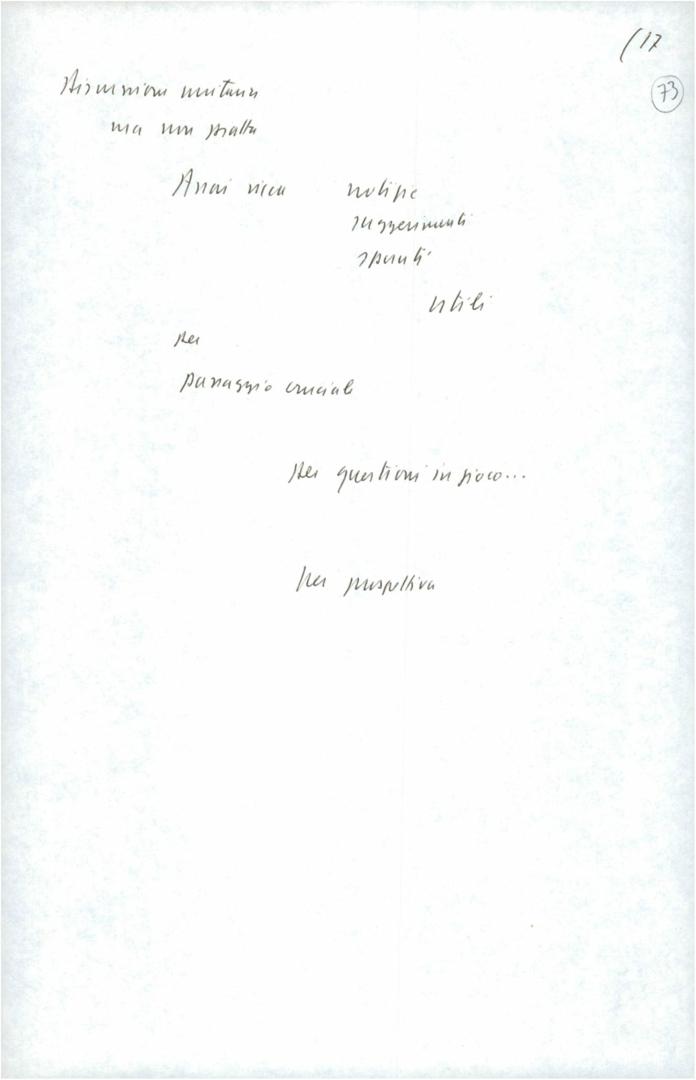 (17
73
Discussione unitaria
ma non piatta
Assai ricca notizie
suggerimenti
spunti
utili
per
passaggio cruciale
per questioni in gioco...
per prospettiva